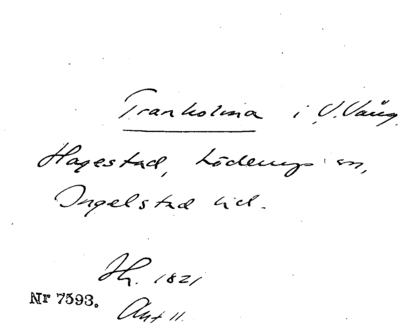 Tranholma i V. Vång
Hagestad, Löderups sn,
Ingelstad hd.
Jh. 1821
Nr 7593.
Akt 11.